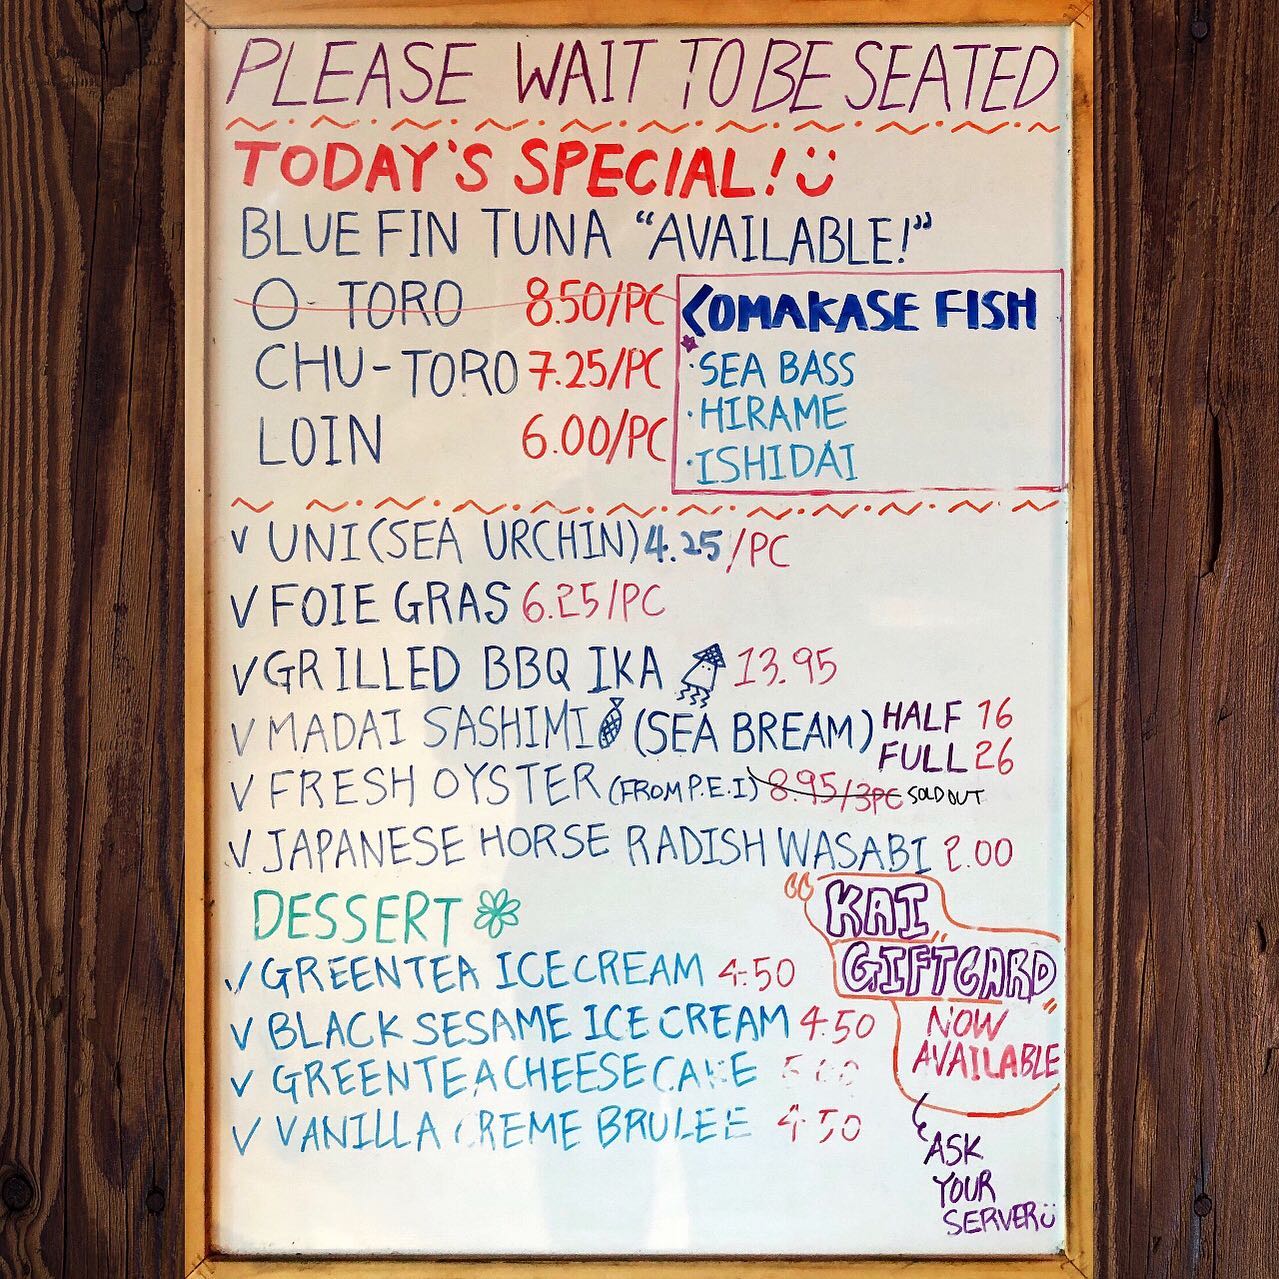 PLEASE WAIT TO BE SEATED
TODAY'S SPECIAL!
BLUE FIN TUNA "AVAILABLE!"
O-TORO 8.50/PC
CHU-TORO 7.25/PC
LOIN 6.00/PC
OMAKASE FISH
·SEA BASS
·HIRAME
·ISHIDAI
✓ UNI (SEA URCHIN) 4.25/PC
✓ FOIE GRAS 6.25/PC
✓ GRILLED BBQ IKA 13.95
✓ MADAI SASHIMI (SEA BREAM) HALF 16
FULL 26
✓ FRESH OYSTER (FROM P.E.I) 8.95/3PC SOLD OUT
✓ JAPANESE HORSE RADISH WASABI 2.00
DESSERT
✓ GREEN TEA ICE CREAM 4.50
✓ BLACK SESAME ICE CREAM 4.50
✓ GREEN TEA CHEESE CAKE
✓ VANILLA CREME BRULEE 4.50
"KAI
GIFTCARD"
NOW
AVAILABLE
ASK
YOUR
SERVER